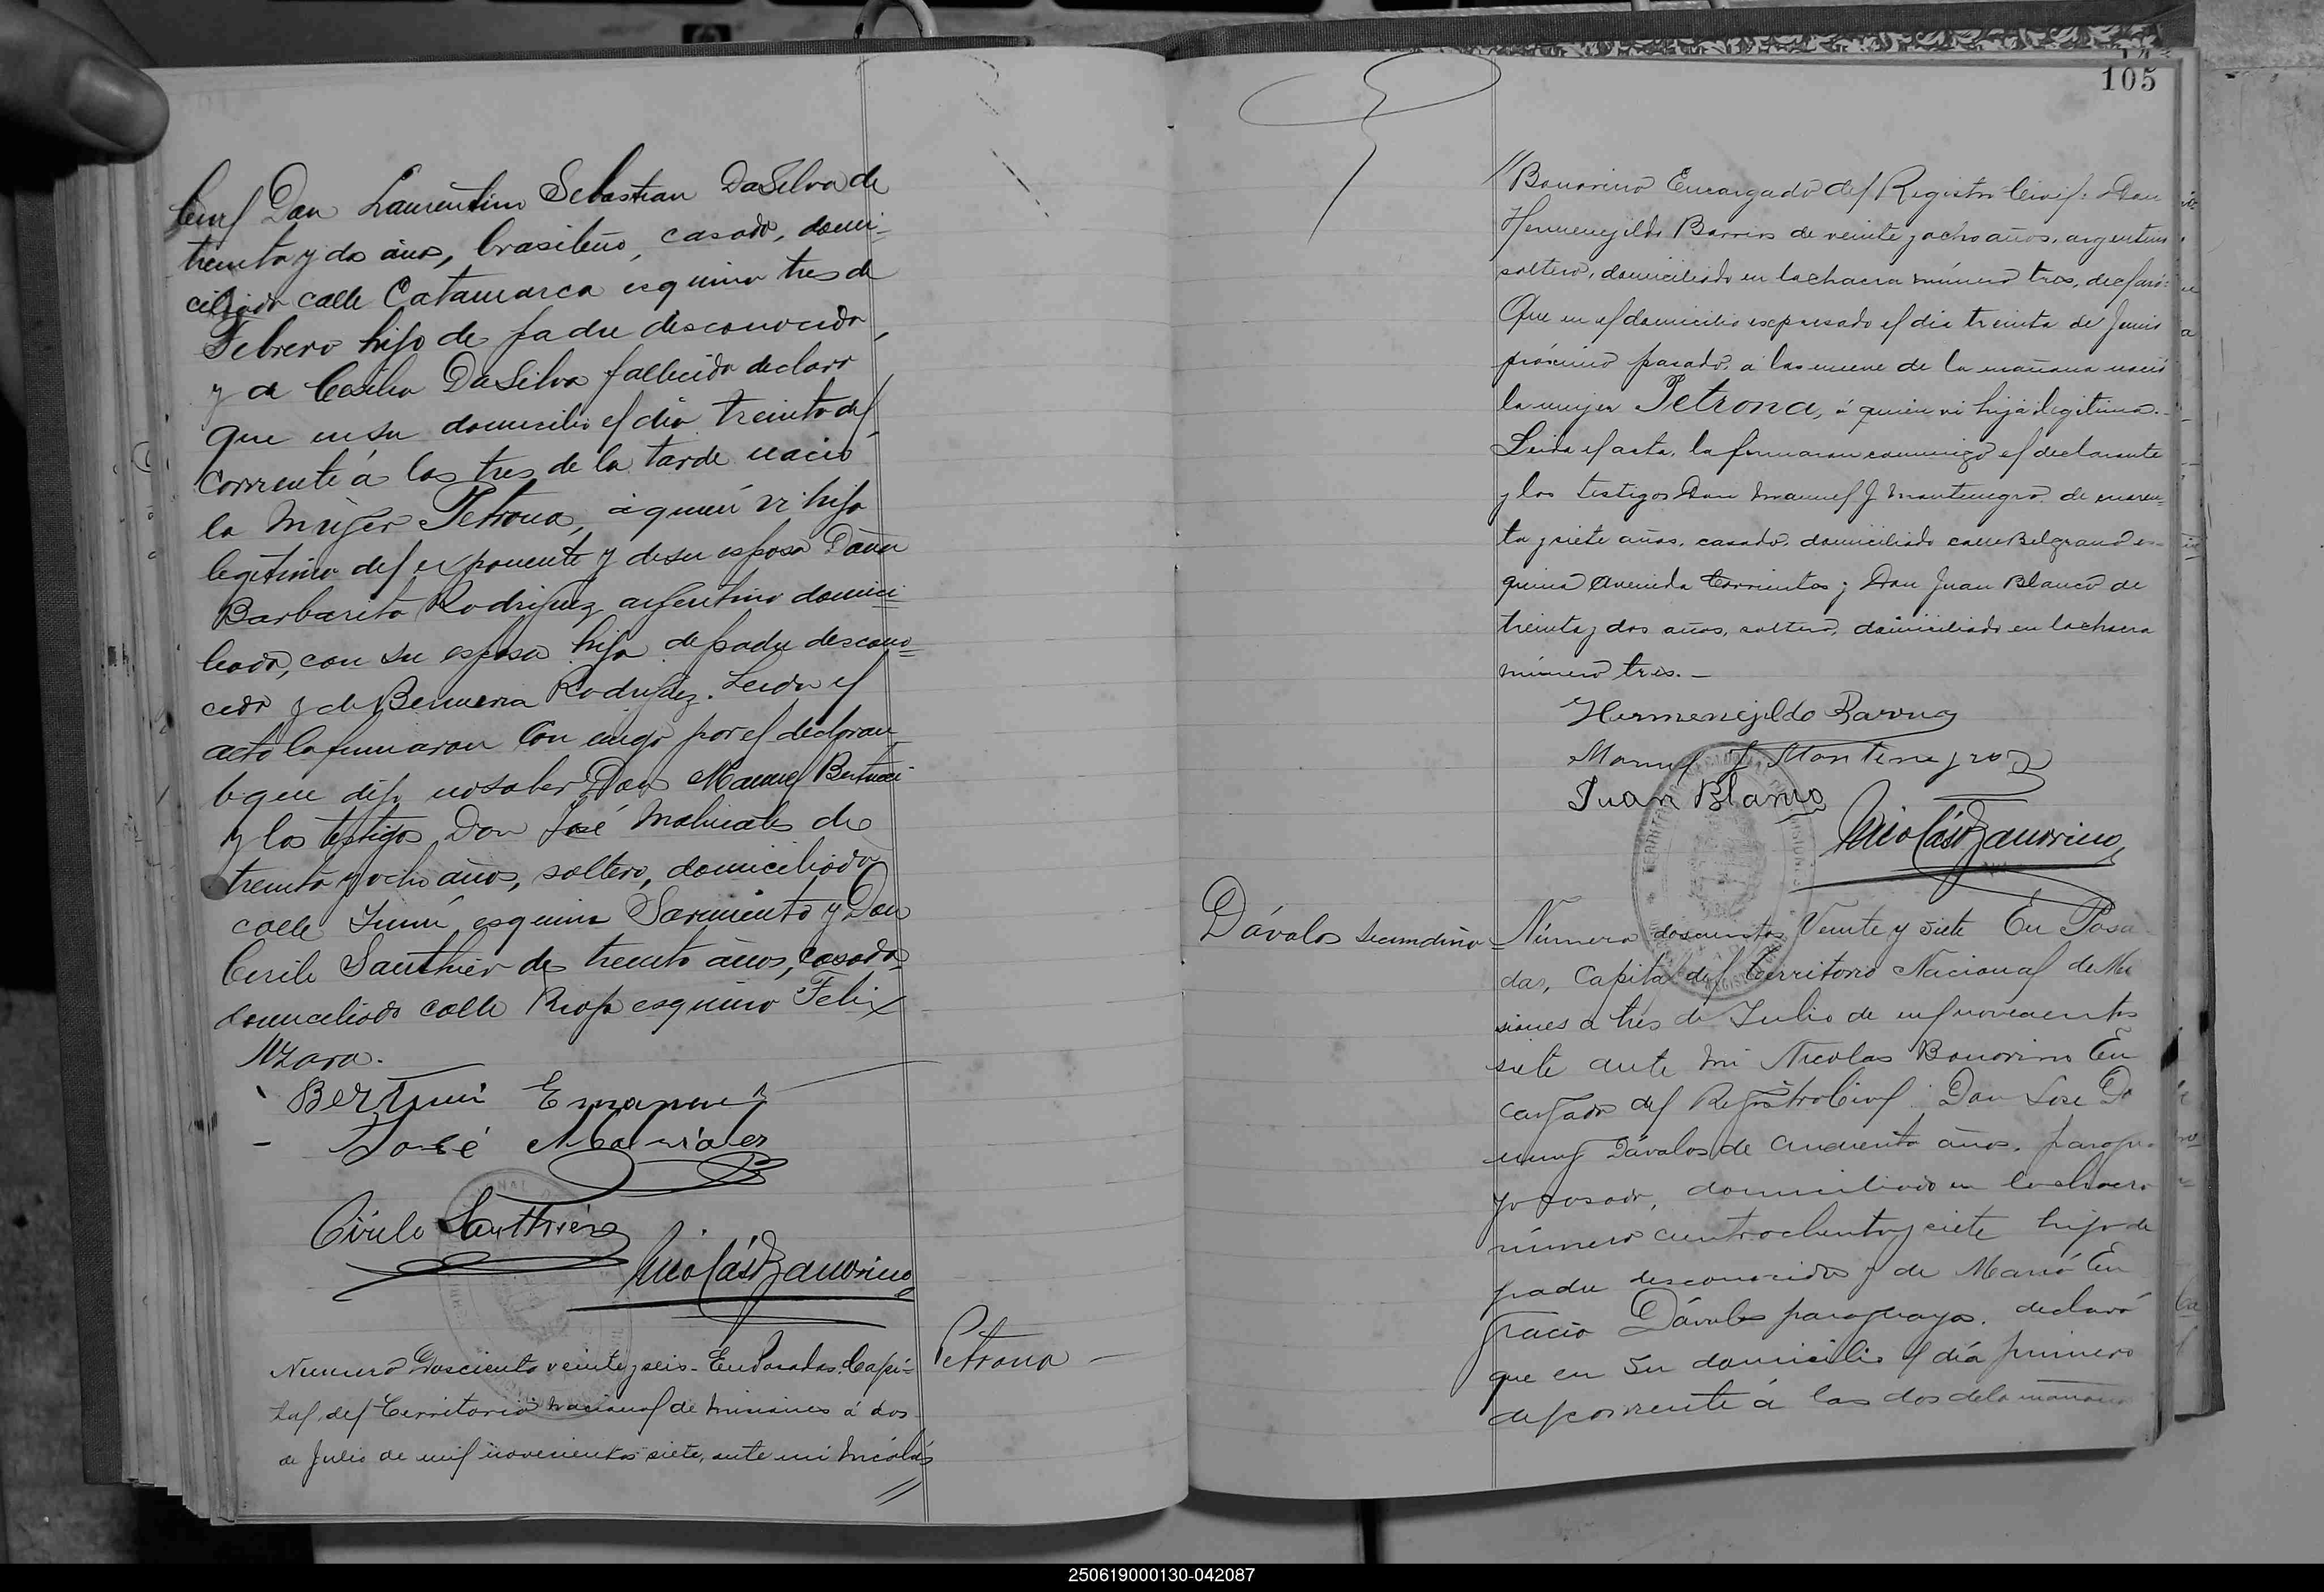 Civil Don Laurentino Sebastian DaSilva de
treinta y dos años, brasileño, casado, domi-
ciliado calle Catamarca esquina tres de
Febrero hijo de padre desconocido
y de DaSilva fallecida declaró
Que en su domicilio el día treinta del
corriente á las tres de la tarde nació
la mujer Petrona, á quién ví hija
legítima del exponente y de su esposa Doña
Barbarita Rodriguez argentina domici-
liada, con su esposo hija de padre descono=
cido y de Rodriguez. Leida el
acta la firmaron conmigo por el declaran
te que dijo no saber Don Manuel
y los testigos Don José de
treinta y ocho años, soltero, domiciliado
calle Junín esquina Sarmiento y Don
Cirilo Santhier de treinta años, casado
domiciliado calle Rioja esquina Felix
Azara.
José
Cirilo Santhier
Nicolás Bonorino
Numero Doscientos veinte y seis - En Posadas, Capi-
tal del Territorio Nacional de Misiones á dos
de Julio de mil novecientos siete, ante mi Nicolás
//
Petrona -
105
//Bonorino Encargado del Registro Civil: Don
Hermenejildo Barrios de veinte y ocho años, argentino
soltero, domiciliado en la chacra número tres, declaró:
Que en el domicilio expresado el día treinta de Junio
próximo pasado, a las nueve de la mañana nació
la mujer Petrona, á quien ví hija legitima.-
Leida el acta, la firmaron conmigo el declarante
y los testigos Don Manuel J. Montenegro de cuaren=
ta y siete años, casado, domiciliado calle Belgrano es-
quina Avenida Corrientes; Don Juan Blanco de
treinta y dos años, soltero, domiciliado en la chacra
número tres.-
Hermenejildo Barrios
Manuel J Montenegro
Juan Blanco
Nicolás Bonorino
Dávalos Secundino
Número doscientos Veinte y siete En Posa
das, Capital del Territorio Nacional de Mi
siones a tres de Julio de mil novecientos
siete ante mi Nicolas Bonorino En
cargado del Registro Civil Don Jose Do
ming Dávalos de cincuenta años, paragua
yo casado, domiciliado en la chacra
número ciento ochenta y siete hijo de
padre desconocido y de María En
gracia Dávalos paraguaya, declaró
que en su domicilio el día primero
del corriente á las dos de la mañana
250619000130-042087